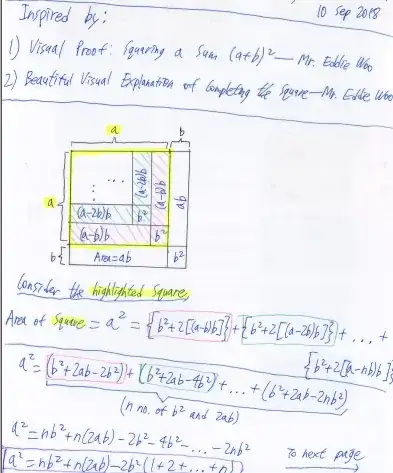 Inspired by:
10 Sep 2018
1) Visual Proof: Squaring a Sum (a+b)² — Mr. Eddie Woo
2) Beautiful Visual Explanation of Completing the Square — Mr. Eddie Woo
a
b
a
...
(a-2b)b
(a-b)b
ab
(a-2b)b
b²
(a-b)b
b²
b
Area=ab
b²
Consider the highlighted square,
Area of square = a² = {b²+2[(a-b)b]} + {b²+2[(a-2b)b]} + ... +
{b²+2[(a-nb)b]}
a² = (b²+2ab-2b²) + (b²+2ab-4b²) + ... + (b²+2ab-2nb²)
(n no. of b² and 2ab)
a² = nb²+n(2ab)-2b²-4b²-...-2nb²
To next page
a² = nb²+n(2ab)-2b²(1+2+...+n)